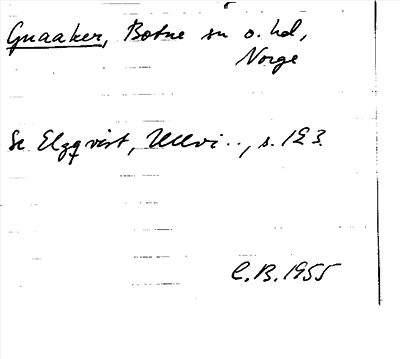 Gnaaker, Botne sn o. hd,
Norge
Se Elgqvist, Ullvi.., s. 123.
C.B. 1955